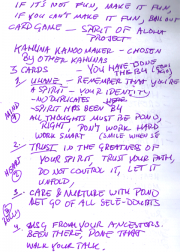 IF IT'S NOT FUN, MAKE IT FUN,
IF YOU CAN'T MAKE IT FUN, BAIL OUT
CARD GAME - SPIRIT OF ALOHA
PROJECT
KAHUNA KANOOMAKER - CHOSEN
BY OTHER KAHUNAS
3 CARDS - YOU HAVE DONE
1. UHANE - REMEMBER THAT YOU'RE
A SPIRIT - YOUR IDENTITY
- NO DUPLICATES
- SPIRIT HAS BEEN BY
ALL THOUGHTS MUST BE PONO,
RIGHT, DON'T WORK HARD
WORK SMART (SMILE WHEN
MIND
2. TRUST IN THE GREATNESS OF
YOUR SPIRIT, TRUST YOUR PATH,
DO NOT CONTROL IT, LET IT
UNFOLD.
HEART
3. CARE & NURTURE WITH PONO
LET GO OF ALL SELF-DOUBTS
BODY
4. MSG FROM YOUR ANCESTORS.
BEEN THERE, DONE THAT
WALK YOUR TALK.